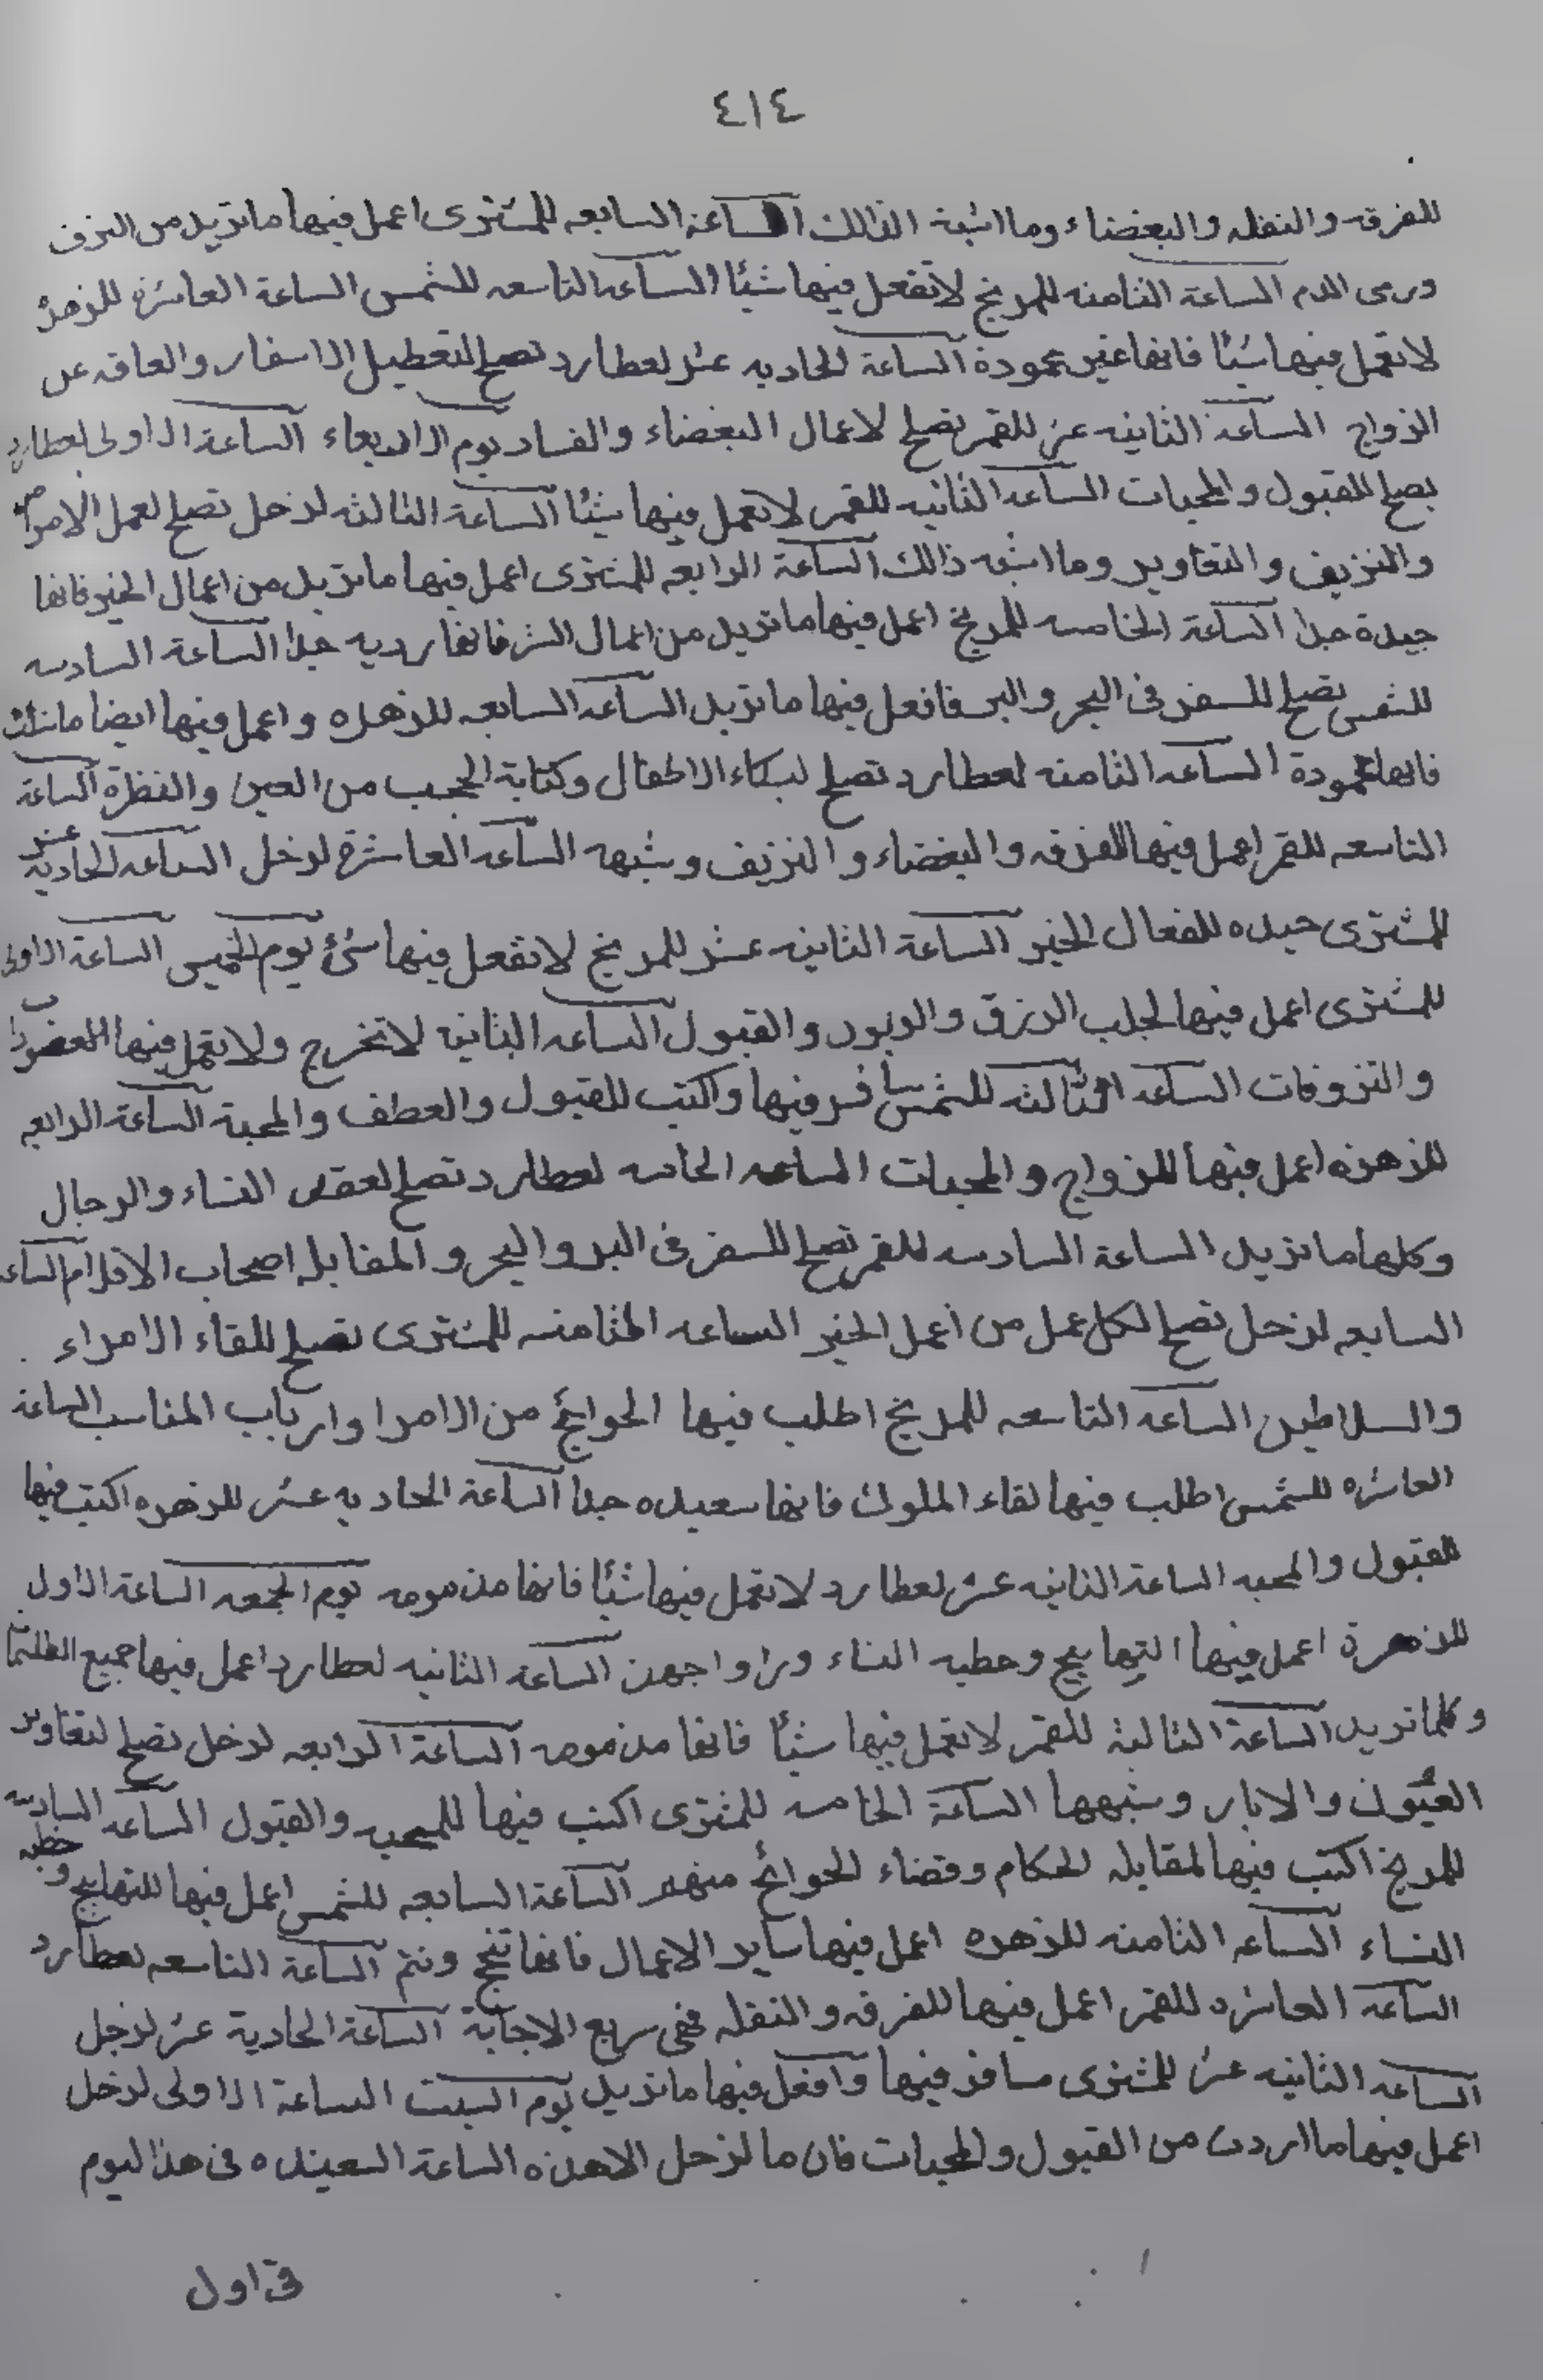 ٤١٤
للفرقه والنقله والبغضاء وما اشبه الذالك الساعة السابعه للمشترى اعمل فيها ما تريد من النزف
ورمى الدم الساعة الثامنه للمريخ لا تفعل فيها شيئا الساعه التاسعه للشمس الساعة العاشرة للزهرة
لا تعمل فيها شيئا فانها غير محمودة الساعة الحاديه عشر لعطارد تصلح لتعطيل الاسفار والعاقه عن
الزواج الساعة الثانيه عشر للقمر تصلح لاعمال البغضاء والفساد يوم الاربعاء الساعة الاولى لعطارد
يصلح للقبول والمحبات الساعه الثانيه للقمر لا تعمل فيها شيئا الساعة الثالثه لزحل تصلح لعمل الامراض
والنزيف والتغاوير وما اشبه ذالك الساعة الرابعه للمشترى اعمل فيها ما تريد من اعمال الخير فانها
جيدة جدا الساعة الخامسه للمريخ اعمل فيها ما تريد من اعمال الشر فانها رديه جدا الساعة السادسه
للشمس تصلح للسفر فى البحر والبر فافعل فيها ما تريد الساعه السابعه للزهره واعمل فيها ايضا ما
فانها محمودة الساعه الثامنه لعطارد تصلح لبكاء الاطفال وكتابة الحجب من العين والنظرة الساعة
التاسعه للقمر اعمل فيها للفرقه والبغضاء والنزيف وشبهه الساعه العاشرة لزحل الساعه الحاديه عشر
للمشترى جيده للفعال الخير الساعة الثانيه عشر للمريخ لا تفعل فيها شئ يوم الخميس الساعة الاولى
للمشترى اعمل فيها لجلب الرزق والزبون والقبول الساعه الثانيه لا تخرج ولا تعمل فيها
والنزوفات الساعه الثالثه للشمس سافر فيها واكتب للقبول والعطف والمحبة الساعة الرابعه
للزهره اعمل فيها للزواج والمحبات الساعه الخامسه لعطارد تصلح لعقد النساء والرجال
وكلها ما تريد الساعة السادسه للقمر تصلح للسفر فى البر والبحر والمقابله اصحاب الاقلام الساعه
السابعه لزحل تصلح لكل عمل من اعمل الخير الساعه الثامنه للمشترى تصلح للقاء الامراء
والسلاطين الساعه التاسعه للمريخ اطلب فيها الحوائج من الامرا وارباب المناسب الساعة
العاشره للشمس اطلب فيها لقاء الملوك فانها سعيده جدا الساعة الحاديه عشر للزهره اكتب فيها
للقبول والمحبه الساعة الثانيه عشر لعطارد لا تعمل فيها شيئا فانها مذمومه يوم الجمعه الساعة الاول
للزهرة اعمل فيها التهاييج وخطبه النساء وزاواجهن الساعة الثانيه لعطارد اعمل فيها جميع
وكلما تريد الساعة الثالثة للقمر لا تعمل فيها شيئا فانها مذمومه الساعة الرابعه لزحل تصلح لتغاوير
العيون والابار وشبهها الساعة الخامسه للمشترى اكتب فيها للمحبه والقبول الساعه السادسه
للمريخ اكتب فيها لمقابله الحكام وقضاء الحوائج منهم الساعة السابعه للشمس اعمل فيها للتهاييج وخطبه
النساء الساعه الثامنه للزهره اعمل فيها ساير الاعمال فانها تنجح وتتم الساعة التاسعه لعطارد
الساعه العاشره للقمر اعمل فيها للفرقه والنقله فهى سريع الاجابة الساعة الحادية عشر لزحل
الساعه الثانيه عشر للمشترى سافر فيها وافعل فيها ما تريد يوم السبت الساعة الاولى لزحل
اعمل فيها ما اردت من القبول والمحبات فان ما لزحل الا هذه الساعة السعيده فى هذا اليوم
فى اول